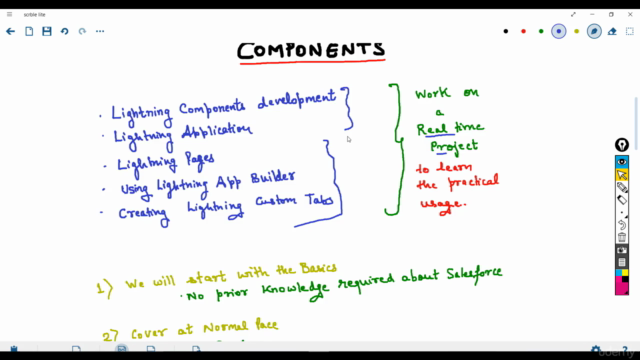 scrble lite
COMPONENTS
• Lightning Components development
• Lightning Application
• Lightning Pages
• Using Lightning App Builder
• Creating Lightning Custom Tabs
Work on
a
Real time
Project
to learn
the practical
usage.
1) We will start with the Basics
• No prior knowledge required about Salesforce
2) Cover at Normal Pace
udemy